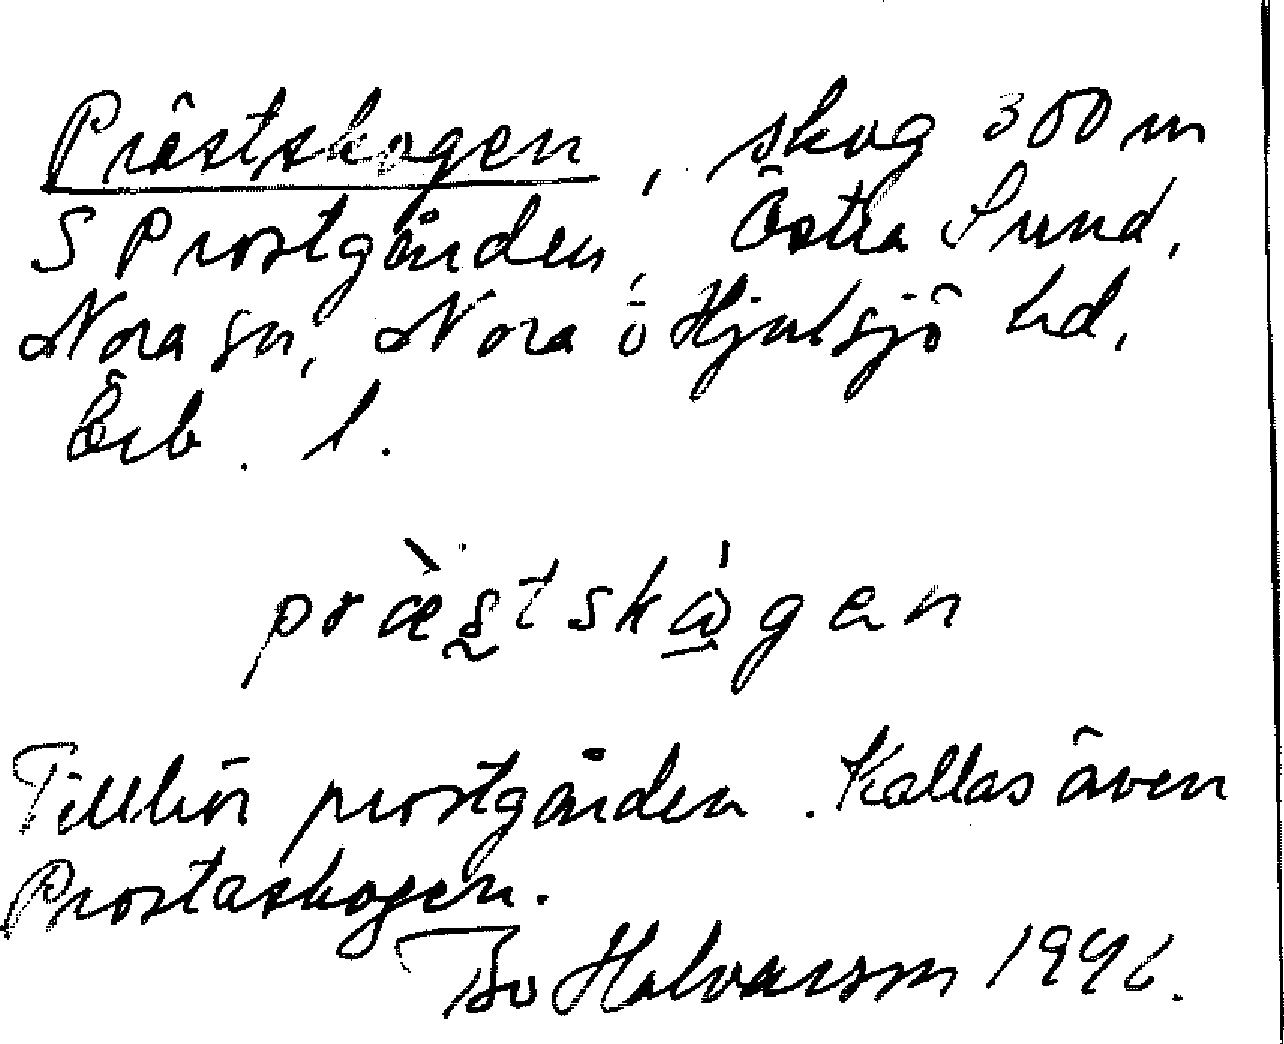 Prästskogen, skog 300 m
S Prostgården, Östra Sund,
Nora sn, Nora o Hjulsjö hd,
Örb. l.
præ̀stskɷ́gen
Tillhör prostgården. Kallas även
Prostaskogen.
Bo Halvarson 1996.